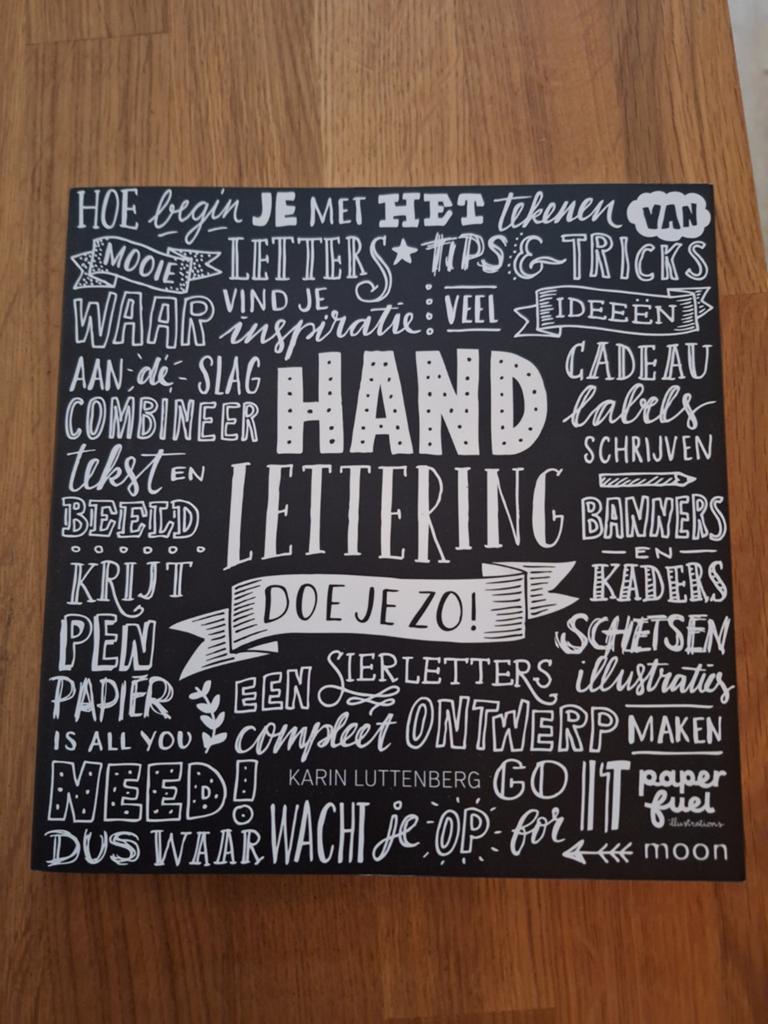 HOE begin JE MET HET tekenen VAN
MOOIE LETTERS TIPS & TRICKS
WAAR VIND JE inspiratie VEEL IDEEËN
AAN de SLAG
COMBINEER
tekst EN
BEELD
KRIJT
PEN
PAPIER
IS ALL YOU
NEED!
HAND
LETTERING
DOE JE ZO!
CADEAU
labels
SCHRIJVEN
BANNERS
EN
KADERS
SCHETSEN
illustraties
EEN SIERLETTERS
compleet ONTWERP MAKEN
KARIN LUTTENBERG GO IT
paper
fuel
illustrations
DUS WAAR WACHT je OP for
moon